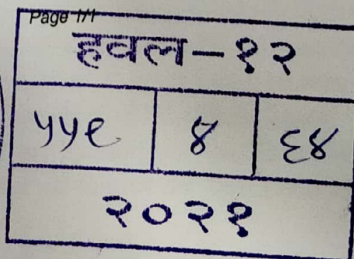 Page 1/1
हवल-१२
५५९ ४ ६४
२०२१